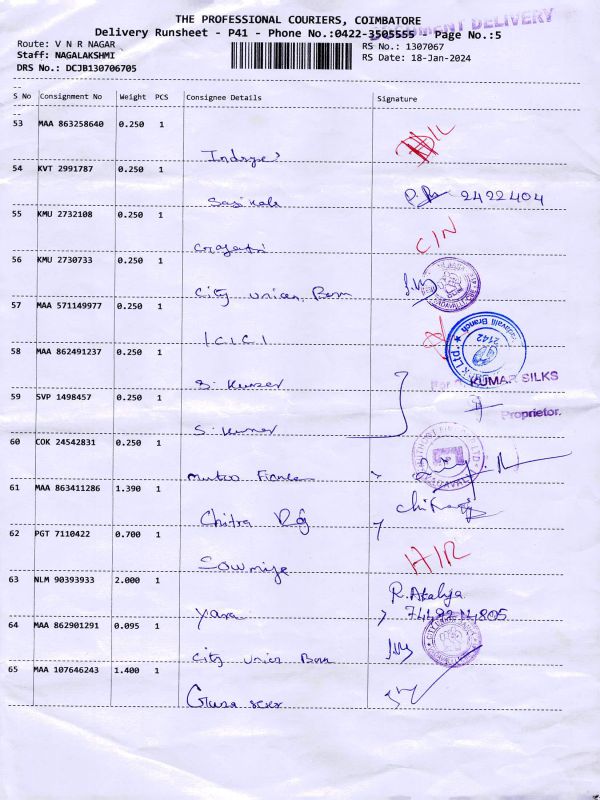 THE PROFESSIONAL COURIERS, COIMBATORE
DOCUMENT DELIVERY
Delivery Runsheet - P41 - Phone No.:0422-3505555 - Page No.:5
Route: V N R NAGAR
RS No.: 1307067
Staff: NAGALAKSHMI
RS Date: 18-Jan-2024
DRS No.: DCJB130706705
S No Consignment No Weight PCS Consignee Details Signature
53 MAA 863258640 0.250 1
54 KVT 2991787 0.250 1
Sasikala 2422404
55 KMU 2732108 0.250 1
C/N
Gayatri
56 KMU 2730733 0.250 1
City Union Bank
57 MAA 571149977 0.250 1
I.C.I.C.I
2142
58 MAA 862491237 0.250 1
S. Kumar
KUMAR SILKS
59 SVP 1498457 0.250 1
Proprietor.
S. Kumar
60 COK 24542831 0.250 1
61 MAA 863411286 1.390 1
Chitra
62 PGT 7110422 0.700 1
Sowmiya
63 NLM 90393933 2.000 1
R. Akalya
Yara
64 MAA 862901291 0.095 1
City Union Bank
65 MAA 107646243 1.400 1